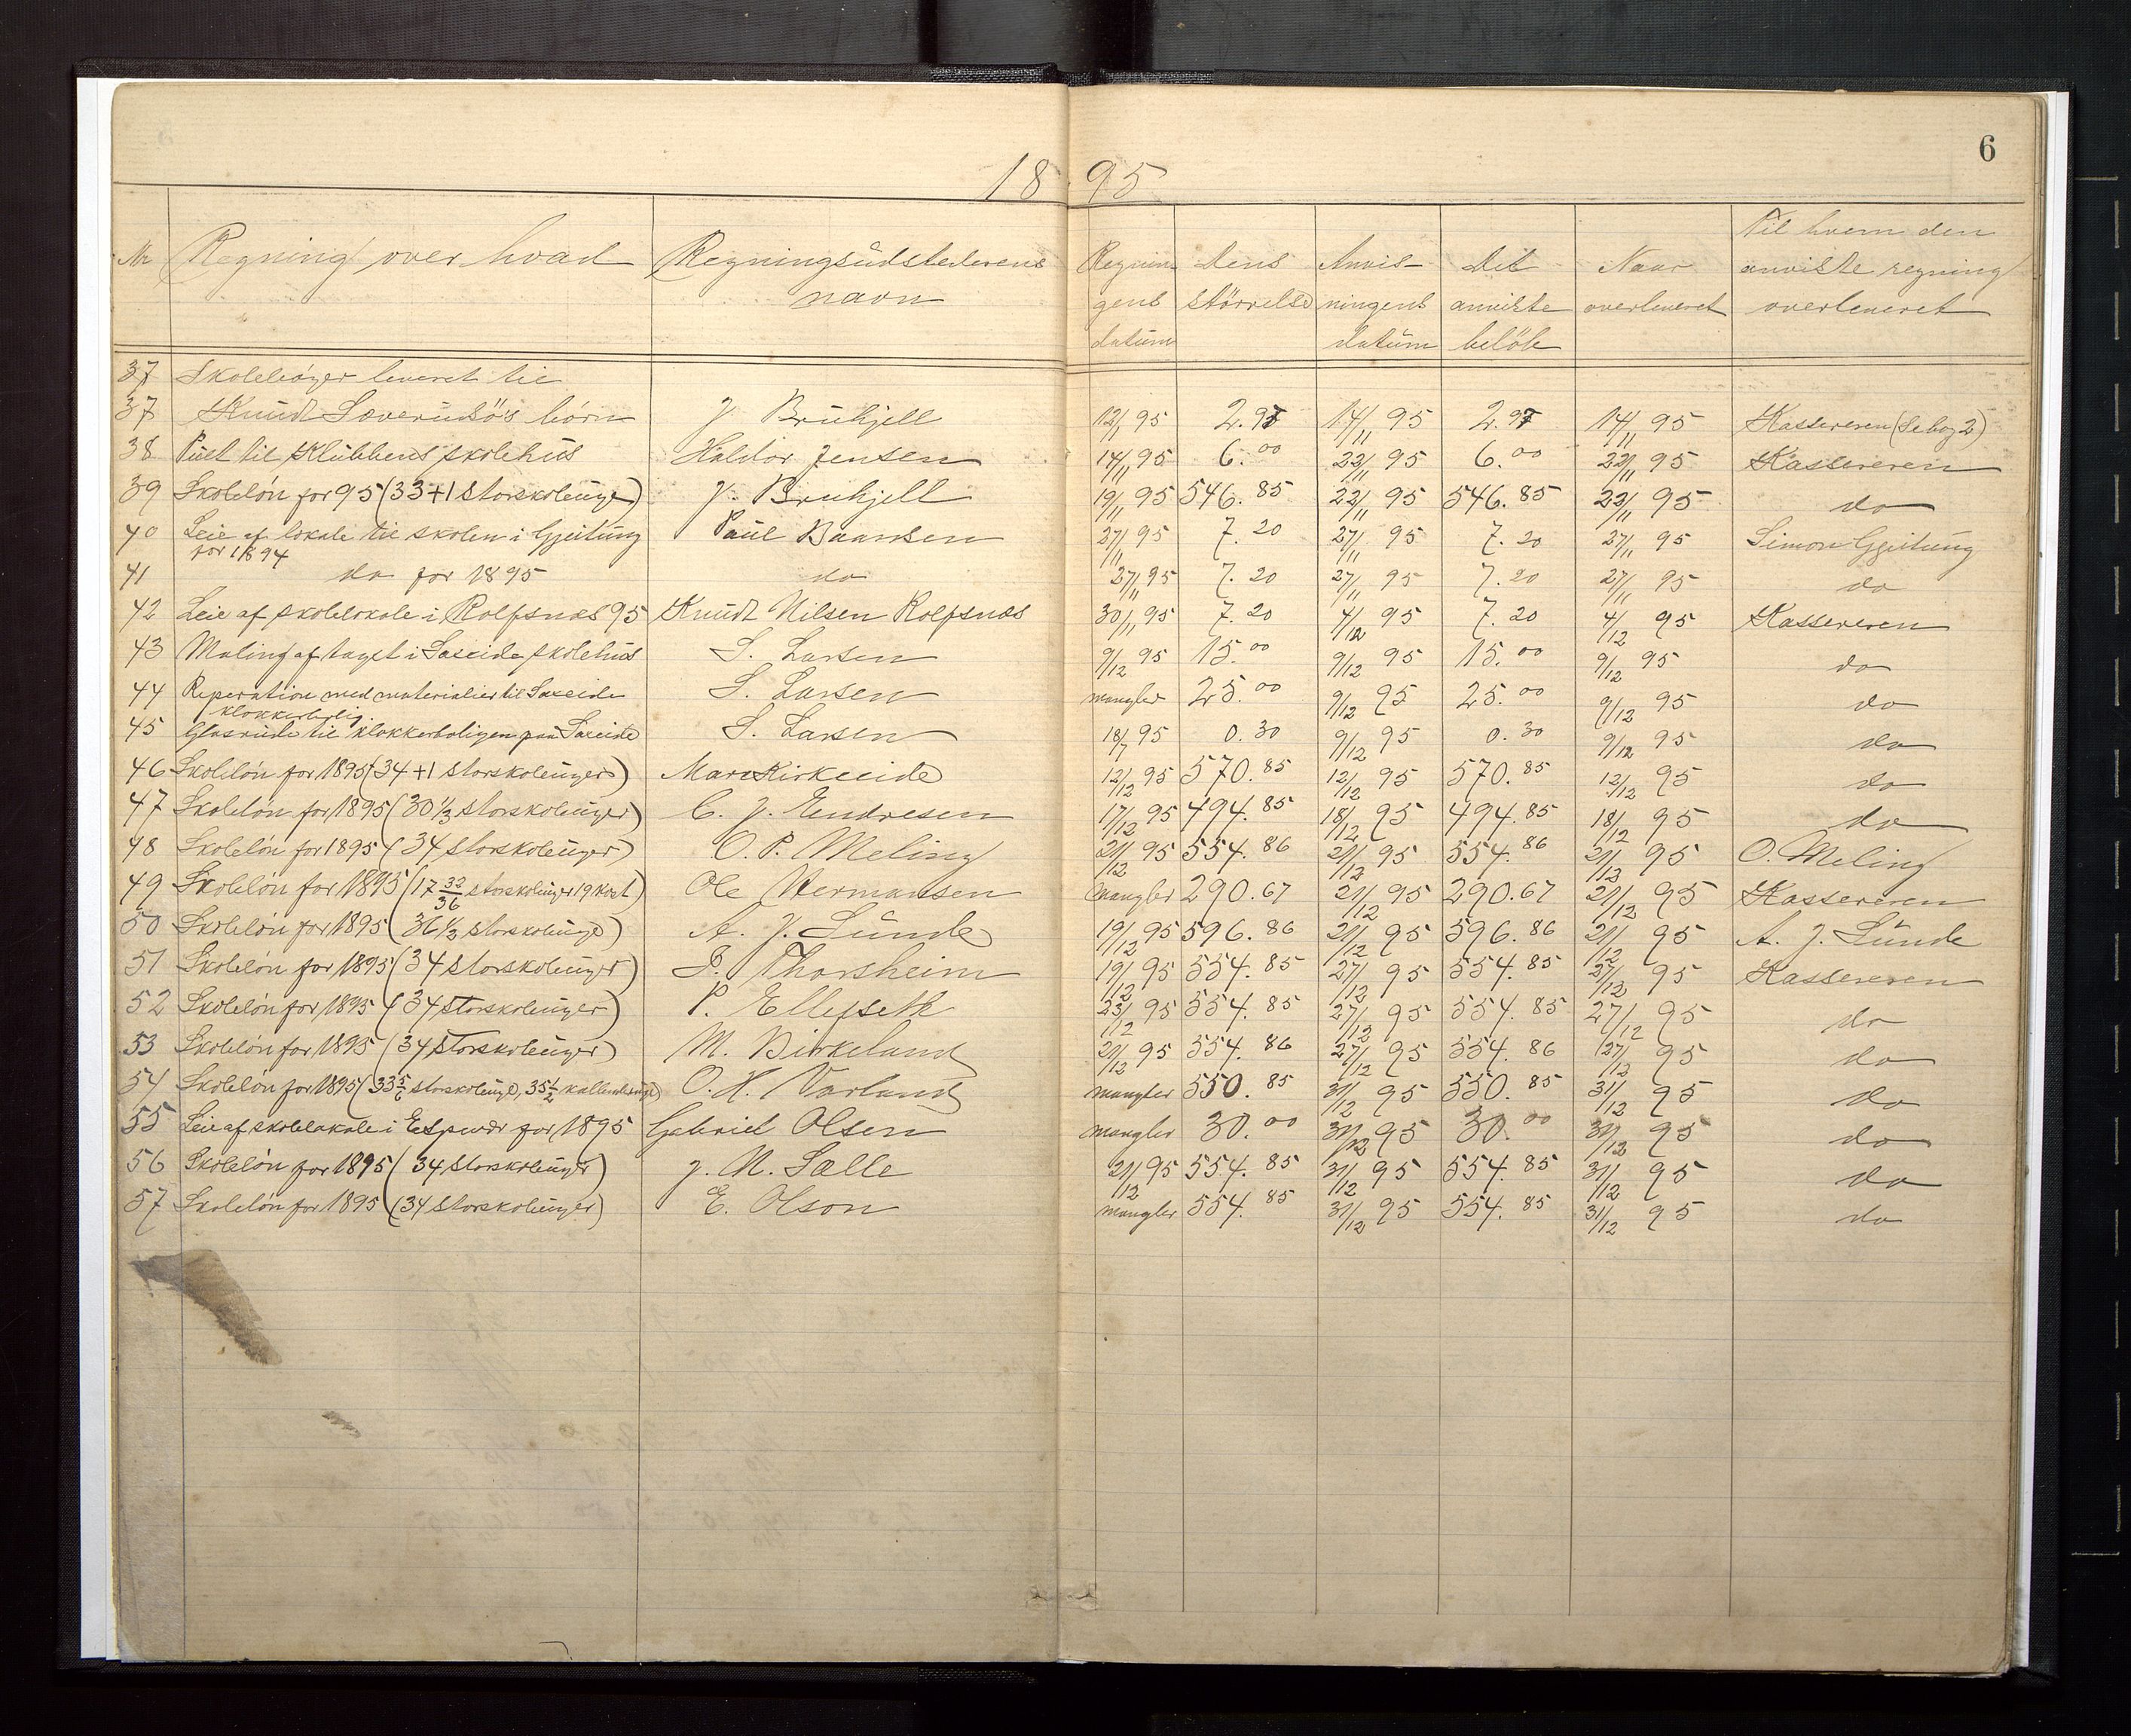 6
18 95
Nr Regning over hvad Regningsudstederens navn Regningens datum Dens størrelse Anvisningens datum Det anviste beløb Naar overleveret Til hvem den anviste regning overleveret
37 Skolebøger leveret til
37 Knudt Sørensø's børn J. Brühjell 12/11 95 2.97 14/11 95 2.97 14/11 95 Kassereren (se bog 2)
38 Püst til Klübbens skolehüs Haldor Jensen 14/11 95 6.00 22/11 95 6.00 22/11 95 Kassereren
39 Skoleløn for 95 (33+1 storskoleüger) J. Brühjell 19/11 95 546.85 22/11 95 546.85 22/11 95 do
40 Leie af lokale til skolen i Gjeitüng Paul Baardsen 27/11 95 7.20 27/11 95 7.20 27/11 95 Simon Gjeitüng
for 1894
41 do for 1895 do 27/11 95 7.20 27/11 95 7.20 27/11 95 do
42 Leie af skolelokale i Rolfsnæs 95 Knüdt Nilsen Rolfsnæs 30/11 95 7.20 4/12 95 7.20 4/12 95 Kassereren
43 Maling af taget i Sæeide skolehüs S. Larsen 9/12 95 15.00 9/12 95 15.00 9/12 95 do
44 Reperation med materialier til Sæeide S. Larsen mangler 25.00 9/12 95 25.00 9/12 95 do
klokkerbolig.
45 Glasrüde til klokkerboligen paa Sæeide S. Larsen 18/7 95 0.30 9/12 95 0.30 9/12 95 do
46 Skoleløn for 1895 (34+1 storskoleüger) Mars Kirkeeide 12/12 95 570.85 12/12 95 570.85 12/12 95 do
47 Skoleløn for 1895 (30 1/3 storskoleüger) C. J. Endresen 17/12 95 494.85 18/12 95 494.85 18/12 95 do
48 Skoleløn for 1895 (34 storskoleüger) O. P. Meling 21/12 95 554.86 21/12 95 554.86 21/12 95 O. Meling
49 Skoleløn for 1895 (17 32/36 storskoleüger 19 kost) Ole Hermansen mangler 290.67 21/12 95 290.67 21/12 95 Kassereren
50 Skoleløn for 1895 (36 1/2 storskoleüge) A. J. Sünde 19/12 95 596.86 21/12 95 596.86 21/12 95 A. J. Sünde
51 Skoleløn for 1895 (34 storskoleüger) P. Thorsheim 19/12 95 554.85 27/12 95 554.85 27/12 95 Kassereren
52 Skoleløn for 1895 (34 storskoleüger) P. Ellefseth 23/12 95 554.85 27/12 95 554.85 27/12 95 do
53 Skoleløn for 1895 (34 storskoleüger) M. Birkeland 21/12 95 554.86 27/12 95 554.86 27/12 95 do
54 Skoleløn for 1895 (33 5/6 storskoleüge, 35 1/2 O. H. Varland mangler 550.85 31/12 95 550.85 31/12 95 do
55 Leie af skolelokale i Espevær for 1895 Gabriel Olsen mangler 30.00 31/12 95 30.00 31/12 95 do
56 Skoleløn for 1895 (34 storskoleüger) J. M. Sælle 21/12 95 554.85 31/12 95 554.85 31/12 95 do
57 Skoleløn for 1895 (34 storskoleüger) E. Olson mangler 554.85 31/12 95 554.85 31/12 95 do